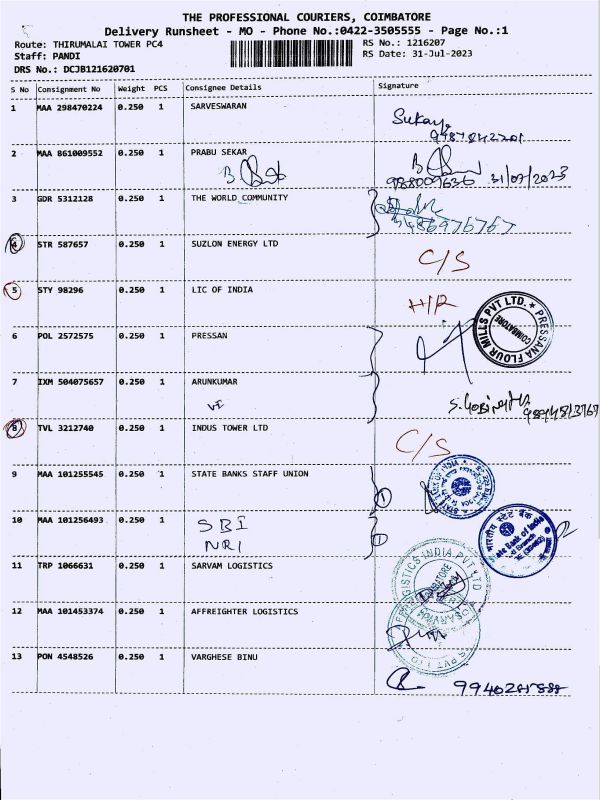 THE PROFESSIONAL COURIERS, COIMBATORE
Delivery Runsheet - MO - Phone No.:0422-3505555 - Page No.:1
Route: THIRUMALAI TOWER PC4
RS No.: 1216207
Staff: PANDI
RS Date: 31-Jul-2023
DRS No.: DCJB121620701
S No Consignment No Weight PCS Consignee Details Signature
1 MAA 298470224 0.250 1 SARVESWARAN
2 MAA 861009552 0.250 1 PRABU SEKAR
31/07/2023
3 GDR 5312128 0.250 1 THE WORLD COMMUNITY
4 STR 587657 0.250 1 SUZLON ENERGY LTD C/S
5 STY 98296 0.250 1 LIC OF INDIA H/R
PRESSANA FLOUR MILLS PVT LTD. COIMBATORE
6 POL 2572575 0.250 1 PRESSAN
7 IXM 504075657 0.250 1 ARUNKUMAR
8 TVL 3212740 0.250 1 INDUS TOWER LTD C/S
9 MAA 101255545 0.250 1 STATE BANKS STAFF UNION
10 MAA 101256493 0.250 1 SBI
NRI
भारतीय स्टेट बैंक
State Bank of India
11 TRP 1066631 0.250 1 SARVAM LOGISTICS
12 MAA 101453374 0.250 1 AFFREIGHTER LOGISTICS
13 PON 4548526 0.250 1 VARGHESE BINU